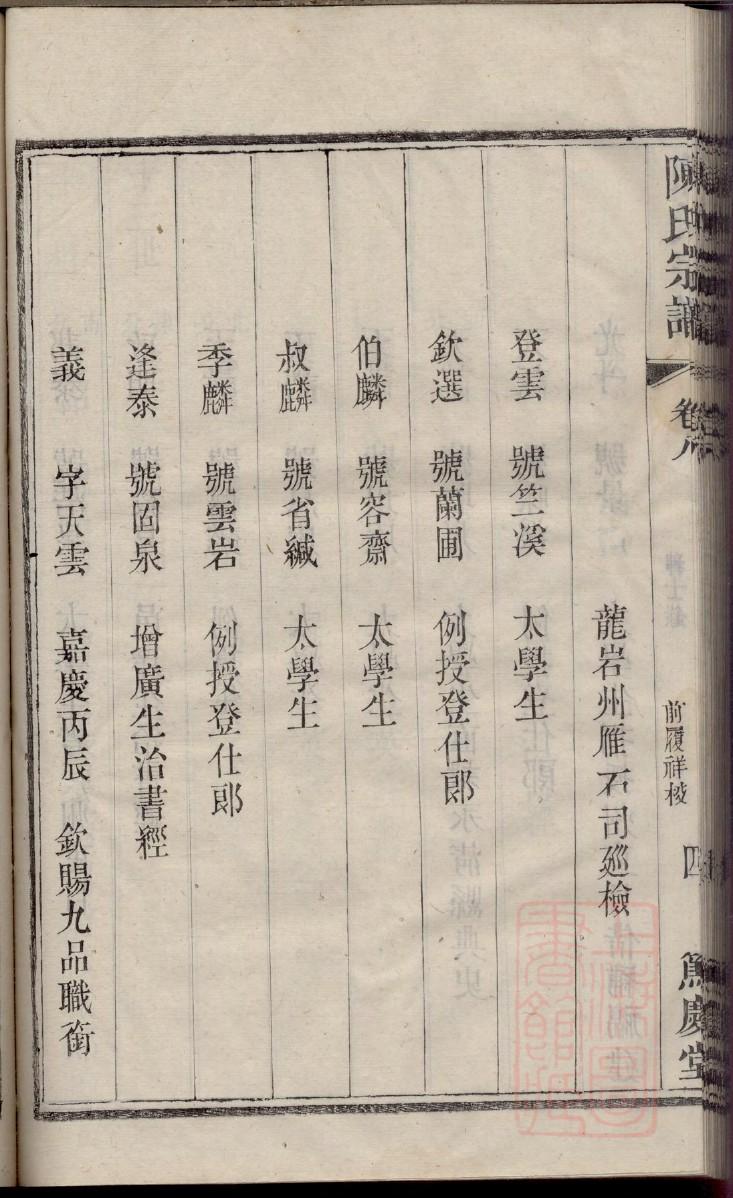 陳氏宗譜 卷 四 慶堂
龍岩州雁石司廵檢
登雲 號竺溪 太學生
欽選 號蘭圃 例授登仕郎
伯麟 號容齋 太學生
叔麟 號省緘 太學生
季麟 號雲岩 例授登仕郎
逢泰 號固泉 增廣生治書經
義 字天雲 嘉慶丙辰 欽賜九品職銜